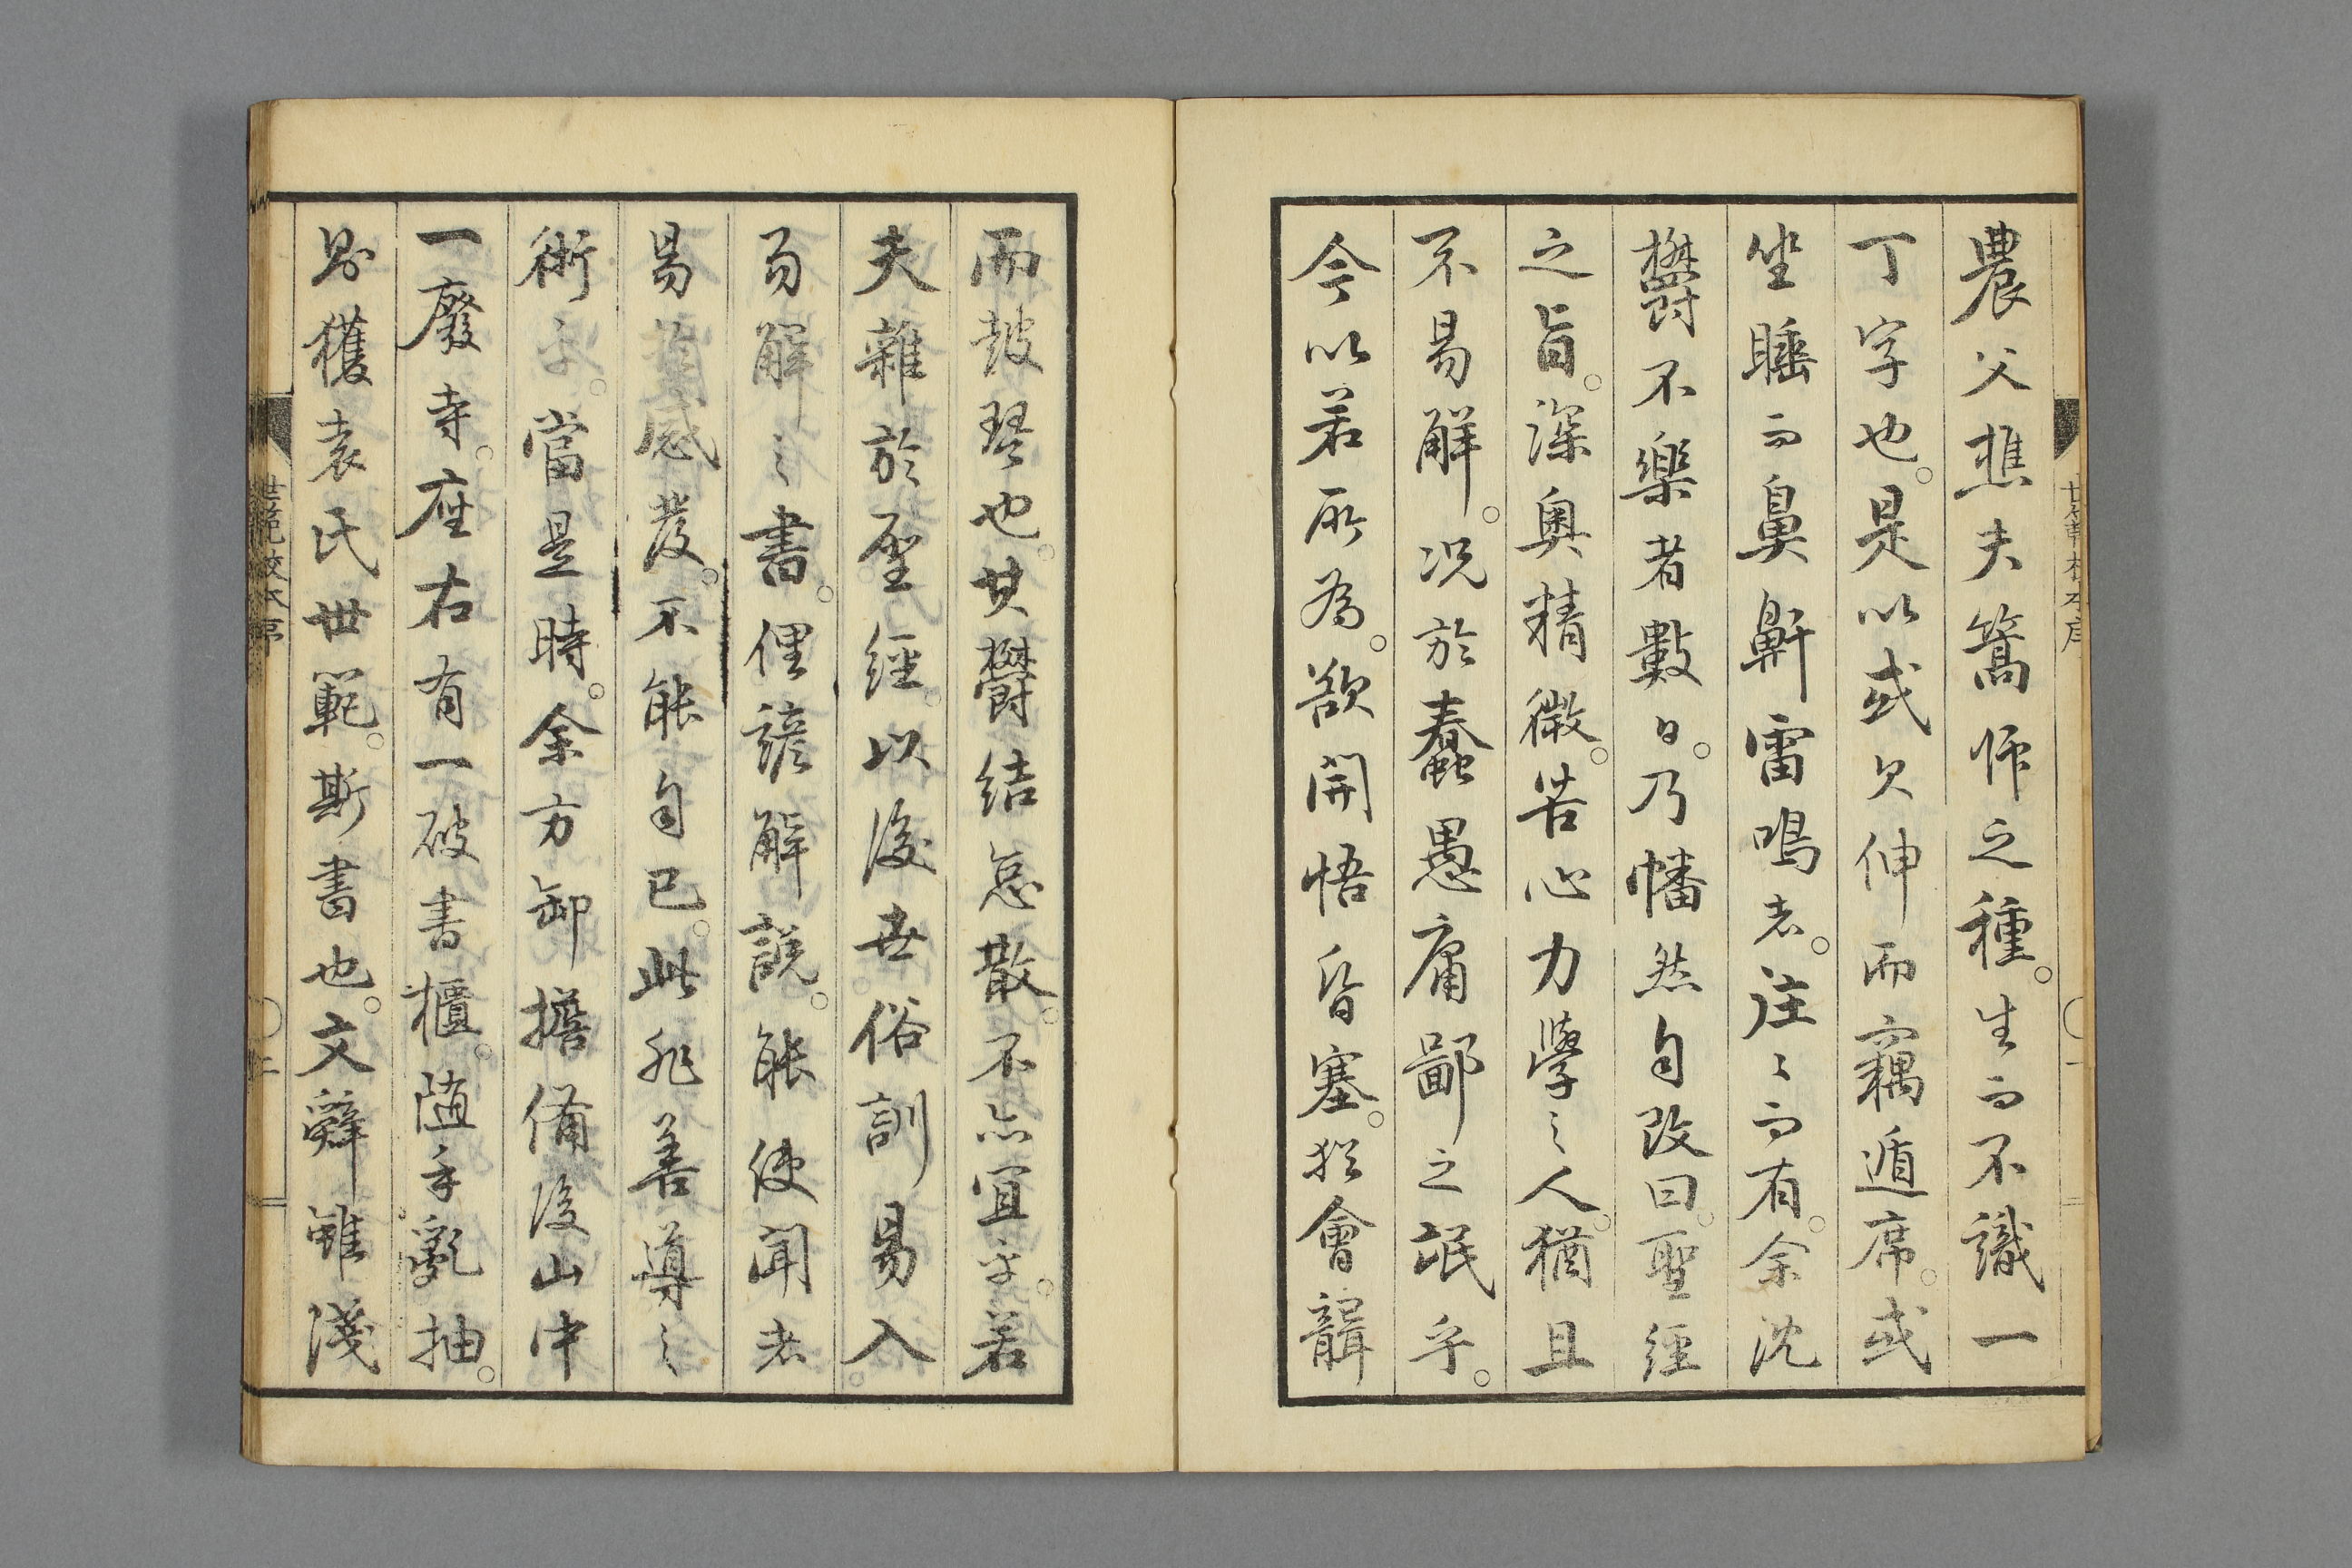 農父樵夫篙師之種。生而不識一
丁字也。是以或欠伸而竊遁席。或
坐睡而鼻鼾雷鳴者。往〻而有。余沈
欝不樂者數日。乃幡然自改曰。聖經
之旨。深奧精微。苦心力學之人。猶且
不易解。況於蠢愚庸鄙之氓乎。
今以若所為。欲開悟昏塞。猶會聾
而鼓琴也。其欝結怠散。不亦宜乎。若
夫雜於聖經。以後世俗訓易入
易解之書。俚諺解説。能使聞者
易　感發。不能自已。此非善導之
術乎。當是時。余方卸擔備後山中
一廢寺。座右有一破書櫃。隨手亂抽。
則獲袁氏世範。斯書也。文辭雖淺
世範校本序
世範校本序